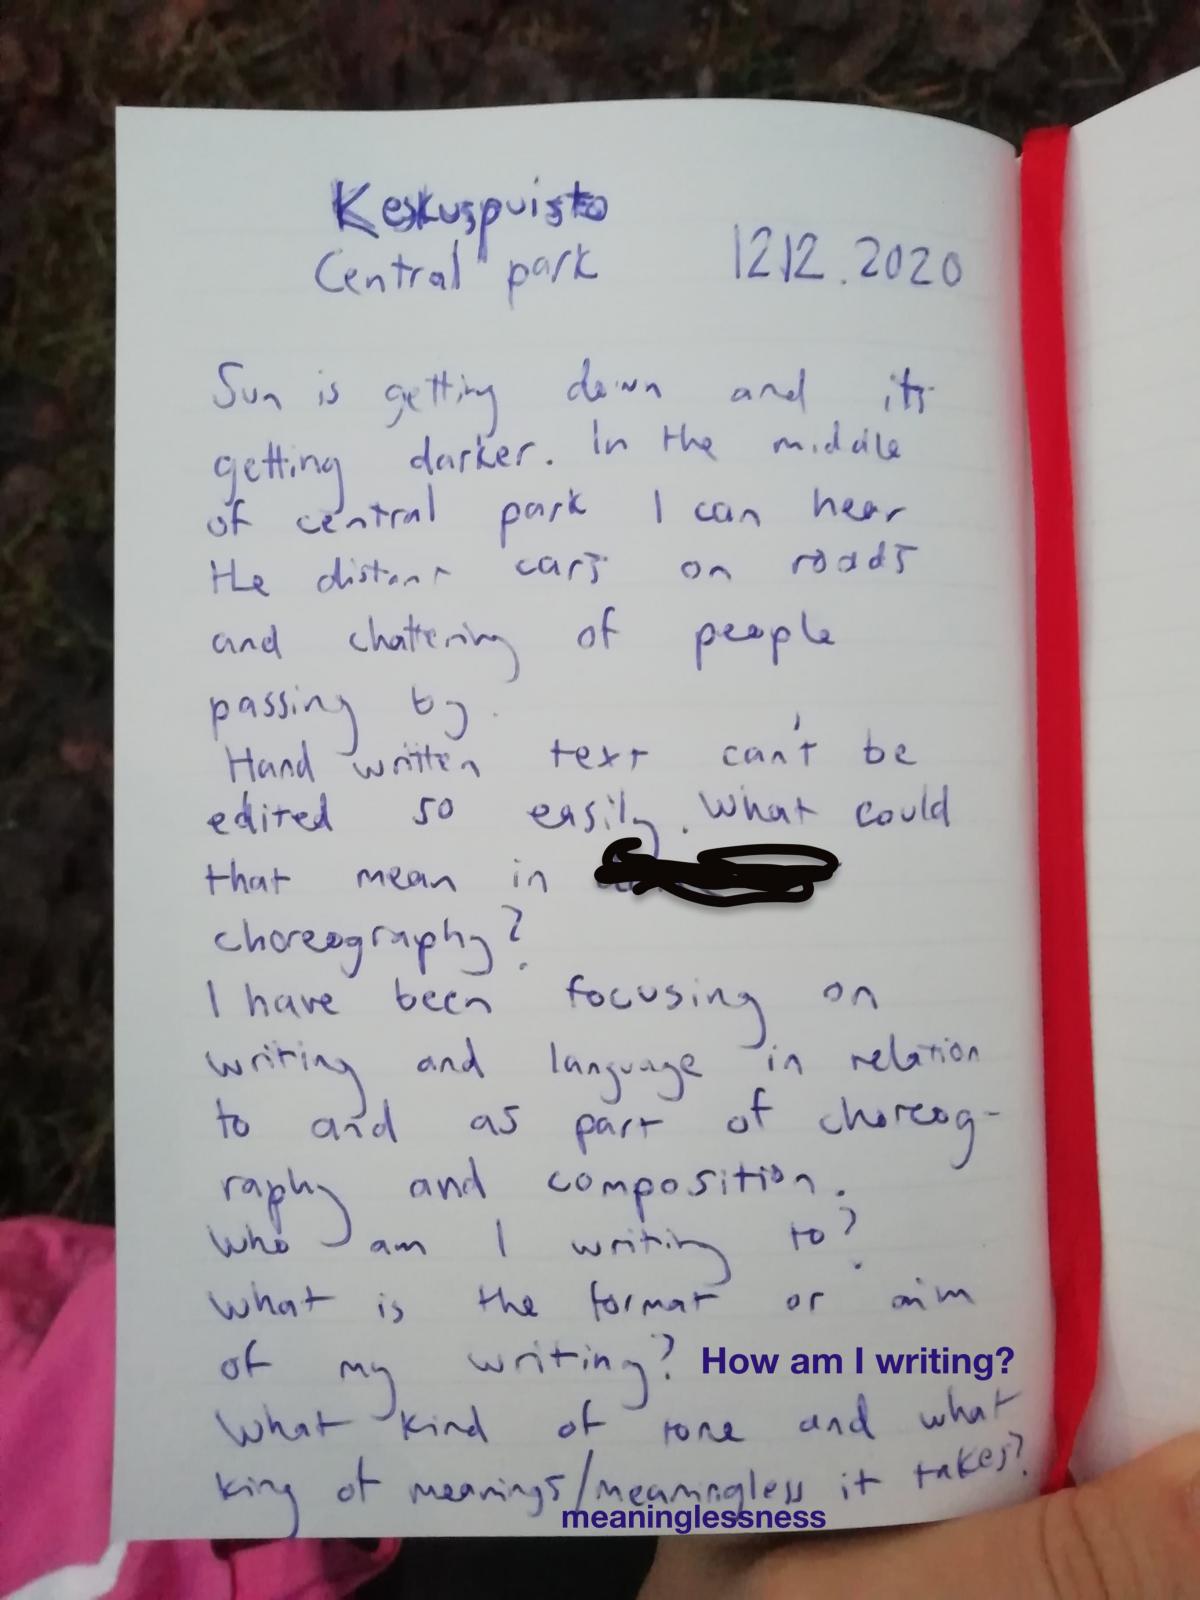 Keskuspuisto
Central park 12.12.2020
Sun is getting down and its
getting darker. In the middle
of central park I can hear
the distant cars on roads
and chattering of people
passing by.
Hand written text can't be
edited so easily. What could
that mean in
choreography?
I have been focusing on
writing and language in relation
to and as part of choreog-
raphy and composition.
Who am I writing to?
What is the format or aim
of my writing? How am I writing?
What kind of tone and what
king of meanings/meaningless it takes?
meaninglessness